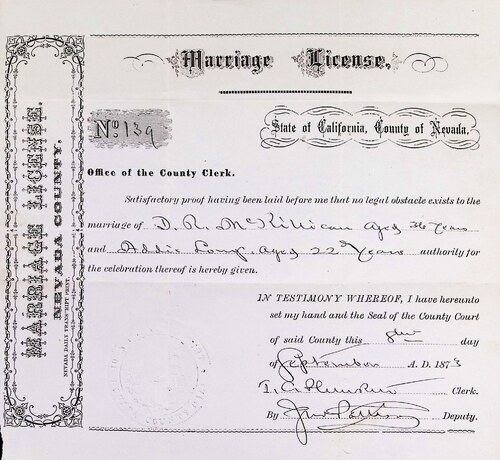 MARRIAGE LICENSE.
NEVADA COUNTY.
NEVADA DAILY TRANSCRIPT PRINT
Marriage License.
No. 139
State of California, County of Nevada.
Office of the County Clerk.
Satisfactory proof having been laid before me that no legal obstacle exists to the
marriage of D. R. McKillican aged 36 years
and Addie Long, aged 22 Years authority for
the celebration thereof is hereby given.
IN TESTIMONY WHEREOF, I have hereunto
set my hand and the Seal of the County Court
of said County this day
of September A. D. 1873
Clerk.
By Deputy.